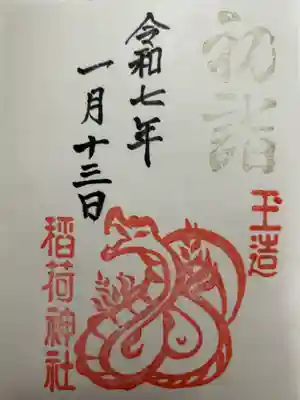 初詣
玉造
令和七年
一月十三日
稲荷神社